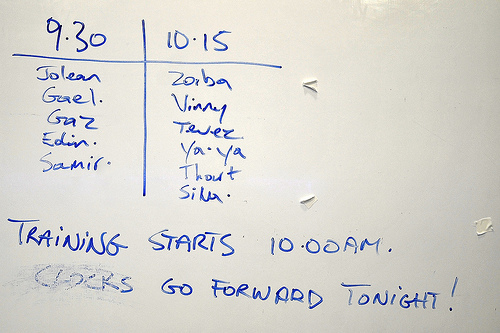 9.30 10.15
Jolean Zoiba
Gael. Vinny
Gaz Tevez
Edin. Ya.Ya
Samir. Thort
Silva.
TRAINING STARTS 10.00AM.
CLOCKS GO FORWARD TONIGHT!